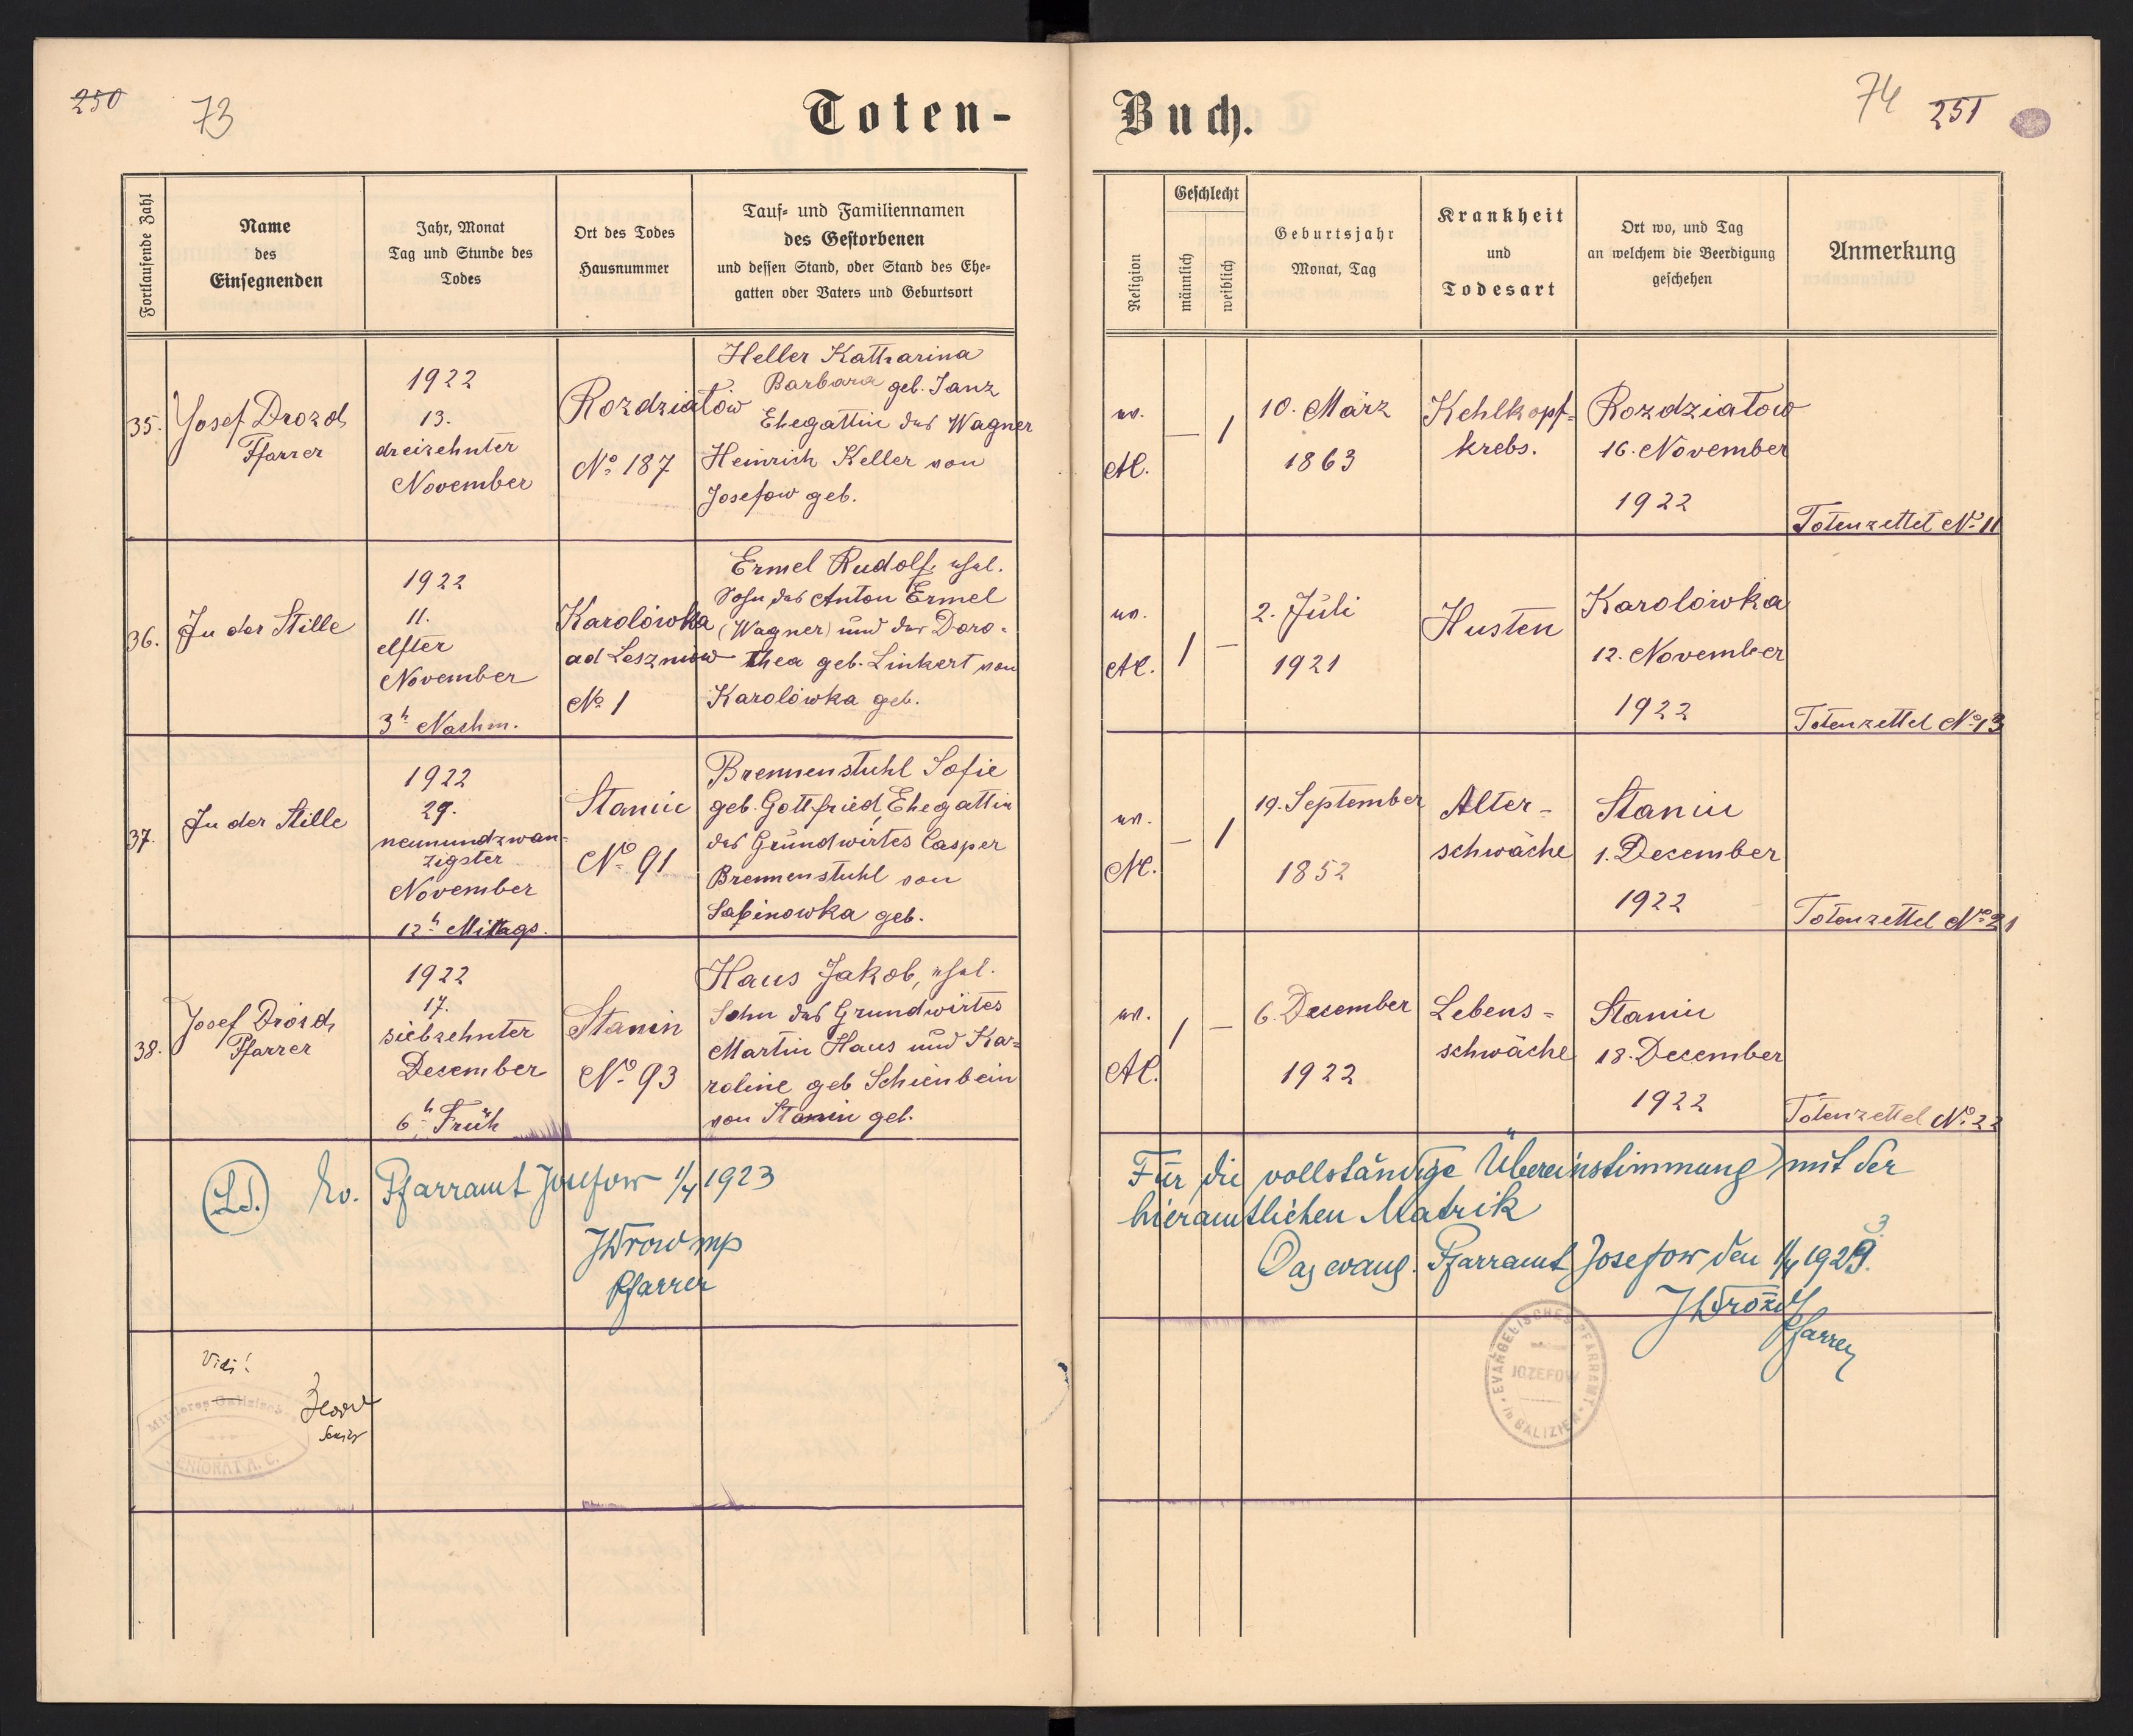 250
73
Toten-
Fortlaufende Zahl
Name
des
Einsegnenden
Jahr, Monat
Tag und Stunde des
Todes
Ort des Todes
Hausnummer
Tauf- und Familiennamen
des Gestorbenen
und dessen Stand, oder Stand des Ehe-
gatten oder Vaters und Geburtsort
35.
Josef Drozd
Pfarrer
1922
13.
dreizehnter
November
Rozdziatów
No 187
Heller Katharina
Barbara geb. Janz
Ehegattin des Wagner
Heinrich Keller von
Josefow geb.
36.
In der Stille
1922
11.
elfter
November
3h Nachm.
Karolówka
ad Lesznow
No 1
Ermel Rudolf, ehel.
Sohn des Anton Ermel
(Wagner) und der Doro-
thea geb. Linkert von
Karolówka geb.
37.
In der Stille
1922
29.
neunundzwan-
zigster
November
12h Mittags.
Stanin
No 91
Brennenstuhl Sofie
geb. Gottfried, Ehegattin
des Grundwirtes Casper
Brennenstuhl von
Sabinowka geb.
38.
Josef Drozd
Pfarrer
1922
17.
siebzehnter
Dezember
6h Früh
Stanin
No 93
Haus Jakob, ehel.
Sohn des Grundwirtes
Martin Haus und Ka-
roline geb Schienbein
von Stanin geb.
(L.S.) Ev. Pfarramt Josefow 1/4 1923
JDrozd mp
Pfarrer
Vidi!
Senior
SENIORAT A. C.
Buch.
74
251
Religion
Geschlecht
männlich
weiblich
Geburtsjahr
Monat, Tag
Krankheit
und
Todesart
Ort wo, und Tag
an welchem die Beerdigung
geschehen
Anmerkung
ev.
A.C.
— 1
10. März
1863
Kehlkopf-
krebs.
Rozdziatow
16. November
1922
Totenzettel No 11
ev.
A.C.
1 —
2. Juli
1921
Husten
Karolówka
12. November
1922
Totenzettel No 13
ev.
A.C.
— 1
19. September
1852
Alter-
schwäche
Stanin
1. December
1922
Totenzettel No 21
ev.
A.C.
1 —
6. Dezember
1922
Lebens-
schwäche
Stanin
18. Dezember
1922
Totenzettel No 22
Für die vollständige Übereinstimmung mit der
hieramtlichen Matrik
Das evang. Pfarramt Josefow den 1/4 1923.
JDrozd
Pfarrer
EVANGELISCHES PFARRAMT
JOZEFOW
in GALIZIEN